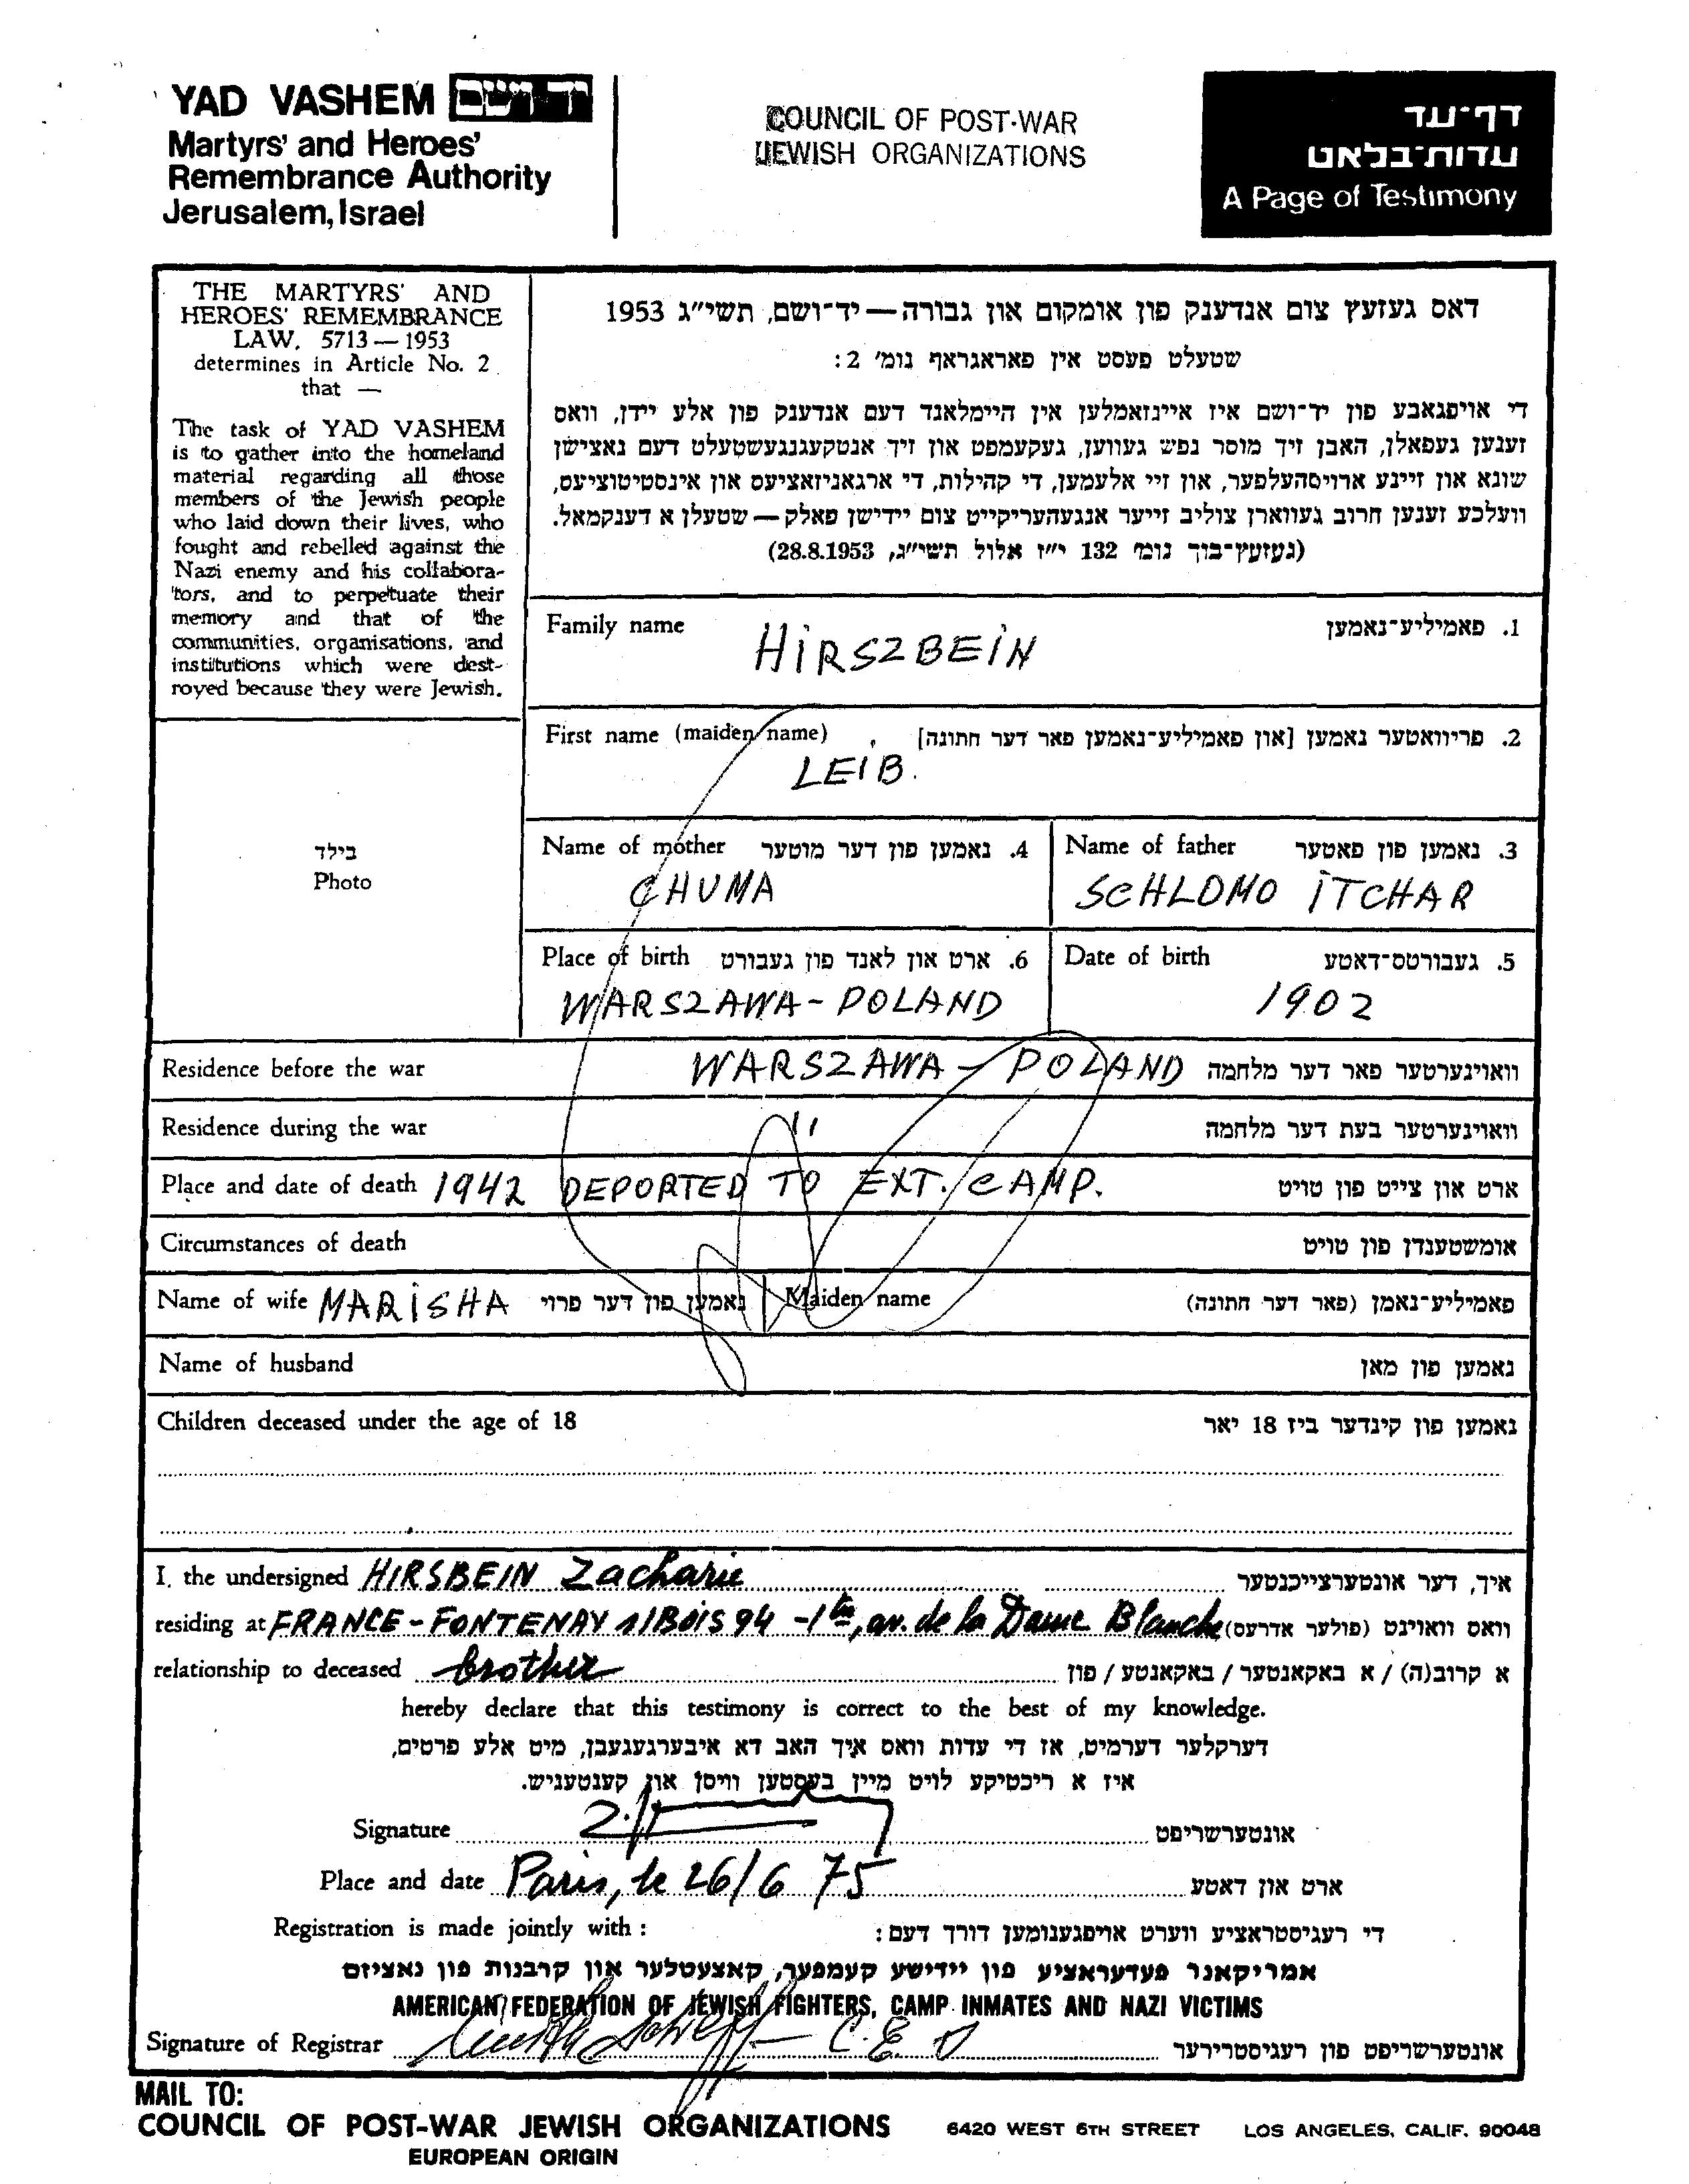 YAD VASHEM יד ושם
Martyrs' and Heroes'
Remembrance Authority
Jerusalem, Israel
COUNCIL OF POST-WAR
JEWISH ORGANIZATIONS
דף-עד
עדות-בלאט
A Page of Testimony
THE MARTYRS' AND
HEROES' REMEMBRANCE
LAW, 5713 — 1953
determines in Article No. 2
that —
The task of YAD VASHEM
is to gather into the homeland
material regarding all those
members of the Jewish people
who laid down their lives, who
fought and rebelled against the
Nazi enemy and his collabora-
tors, and to perpetuate their
memory and that of the
communities, organisations, and
institutions which were dest-
royed because they were Jewish.
דאס געזעץ צום אנדענק פון אומקום און גבורה — יד-ושם, תשי"ג 1953
שטעלט פעסט אין פאראגראף נומ' 2:
די אויפגאבע פון יד-ושם איז איינזאמלען אין היימלאנד דעם אנדענק פון אלע יידן, וואס
זענען געפאלן, האבן זיך מוסר נפש געווען, געקעמפט און זיך אנטקעגנגעשטעלט דעם נאצישן
שונא און זיינע ארויסהעלפער, און זיי אלעמען, די קהילות, די ארגאניזאציעס און אינסטיטוציעס,
וועלכע זענען חרוב געווארן צוליב זייער אנגעהעריקייט צום יידישן פאלק — שטעלן א דענקמאל.
(געזעץ-בוך נומ' 132 י"ז אלול תשי"ג, 28.8.1953)
Family name HIRSZBEIN 1. פאמיליע-נאמען
First name (maiden name) 2. פריוואטער נאמען [און פאמיליע-נאמען פאר דער חתונה]
LEIB.
בילד
Photo
Name of mother 4. נאמען פון דער מוטער
CHUMA
Name of father 3. נאמען פון פאטער
SCHLOMO ITCHAR
Place of birth 6. ארט און לאנד פון געבורט
WARSZAWA - POLAND
Date of birth 5. געבורטס-דאטע
1902
Residence before the war WARSZAWA - POLAND וואוינערטער פאר דער מלחמה
Residence during the war " וואוינערטער בעת דער מלחמה
Place and date of death 1942 DEPORTED TO EXT. CAMP. ארט און צייט פון טויט
Circumstances of death אומשטענדן פון טויט
Name of wife MARISHA נאמען פון דער פרוי Maiden name פאמיליע-נאמן (פאר דער חתונה)
Name of husband נאמען פון מאן
Children deceased under the age of 18 נאמען פון קינדער ביז 18 יאר
I, the undersigned HIRSBEIN Zacharie איך, דער אונטערצייכנטער
residing at FRANCE - FONTENAY s/BOIS 94 - 1 ter, av. de la Dame Blanche וואס וואוינט (פולער אדרעס)
relationship to deceased brother א קרוב(ה) / א באקאנטער / באקאנטע / פון
hereby declare that this testimony is correct to the best of my knowledge.
דערקלער דערמיט, אז די עדות וואס איך האב דא איבערגעגעבן, מיט אלע פרטים,
איז א ריכטיקע לויט מיין בעסטען וויסן און קענטעניש.
Signature אונטערשריפט
Place and date Paris, le 26/6 75 ארט און דאטע
Registration is made jointly with : די רעגיסטראציע ווערט אויפגענומען דורך דעם :
אמריקאנר פעדעראציע פון יידישע קעמפער, קאצעטלער און קרבנות פון נאציזם
AMERICAN FEDERATION OF JEWISH FIGHTERS, CAMP INMATES AND NAZI VICTIMS
Signature of Registrar אונטערשריפט פון רעגיסטרירער
MAIL TO:
COUNCIL OF POST-WAR JEWISH ORGANIZATIONS 6420 WEST 6TH STREET LOS ANGELES, CALIF. 90048
EUROPEAN ORIGIN